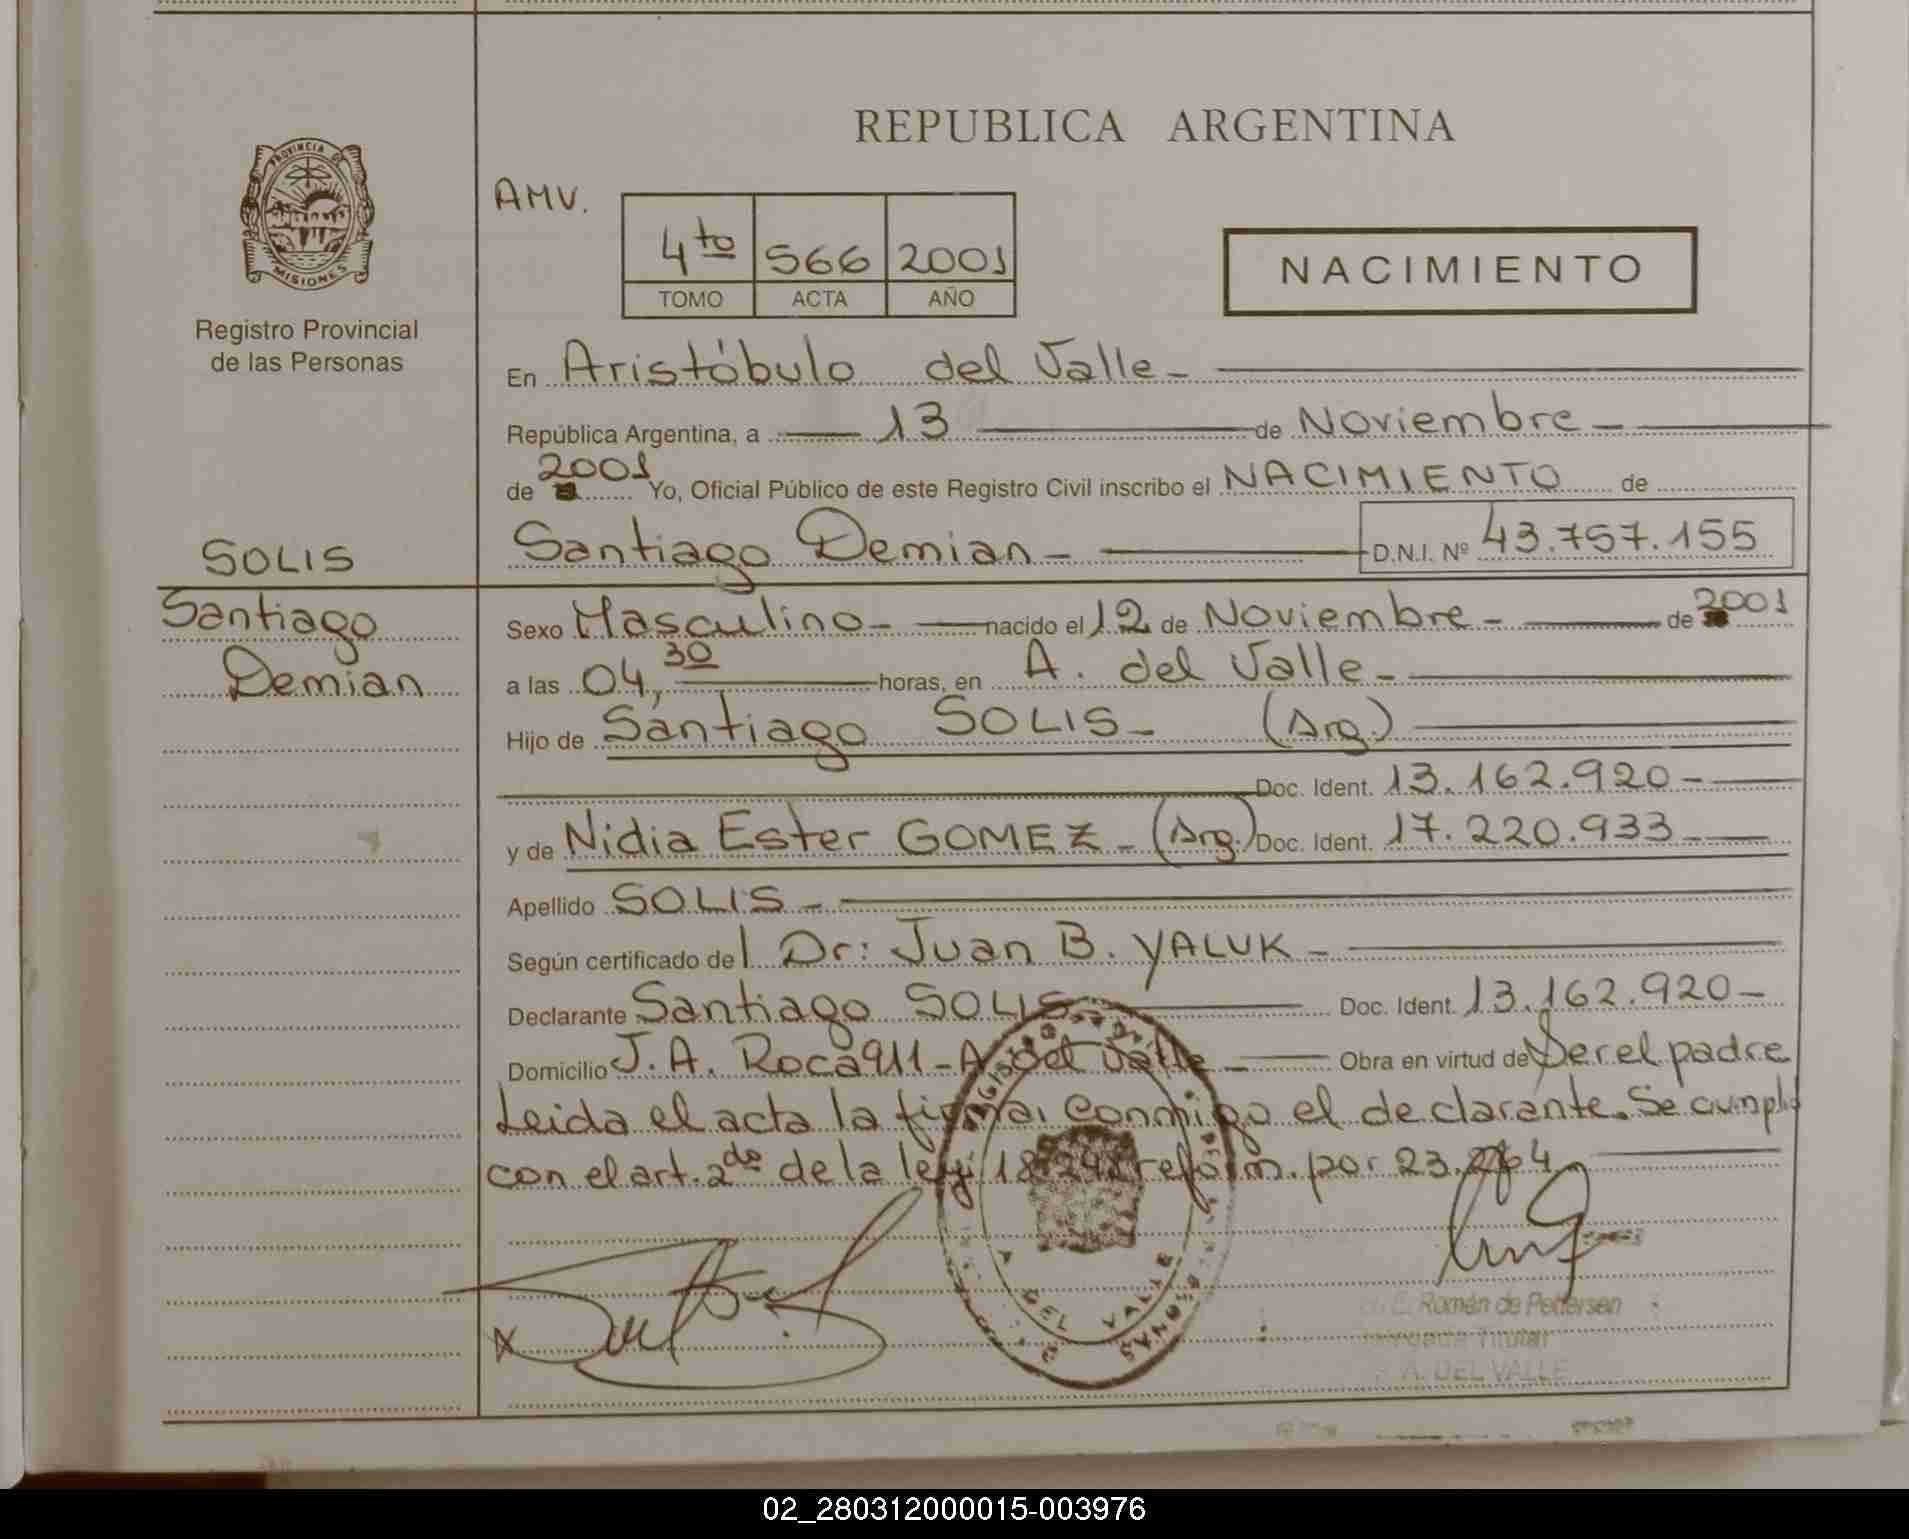 REPUBLICA ARGENTINA
PROVINCIA DE
MISIONES
Registro Provincial
de las Personas
AMV.
4to 566 2001
TOMO ACTA AÑO
NACIMIENTO
En Aristóbulo del Valle-
República Argentina, a 13 de Noviembre-
de 2001 Yo, Oficial Público de este Registro Civil inscribo el NACIMIENTO de
Santiago Demian- D.N.I. Nº 43.757.155
SOLIS
Santiago
Demian
Sexo Masculino- nacido el 12 de Noviembre- de 2001
a las 04,30 horas, en A. del Valle-
Hijo de Santiago SOLIS- (Arg.)
Doc. Ident. 13.162.920-
y de Nidia Ester GOMEZ- (Arg.) Doc. Ident. 17.220.933-
Apellido SOLIS-
Según certificado del Dr: Juan B. YALUK-
Declarante Santiago SOLIS Doc. Ident. 13.162.920-
Domicilio J. A. Roca 911-A. del Valle- Obra en virtud de Ser el padre
Leida el acta la firma, conmigo el declarante. Se cumplió
con el art. 2do de la ley 18.248 reform. por 23.264
DEL VALLE
MISIONES
Román de Pettersen
Titular
A. DEL VALLE
02_280312000015-003976